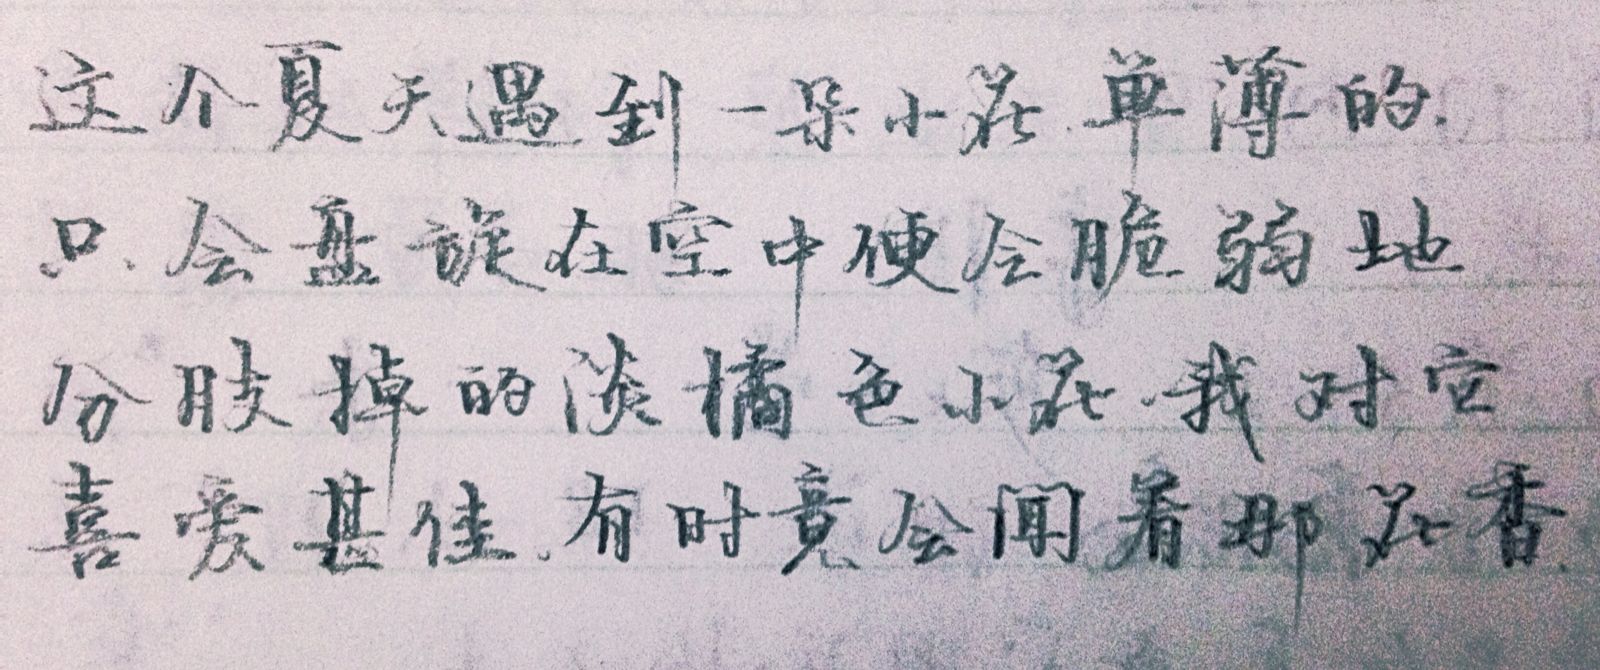 这个夏天遇到一朵小花.单薄的.
只.会盘旋在空中便会脆弱地
分肢掉的淡橘色小花.我对它
喜爱甚佳.有时竟会闻着那花香.